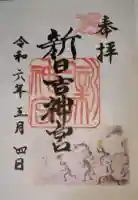 奉拝
新日吉神宮
令和六年五月四日